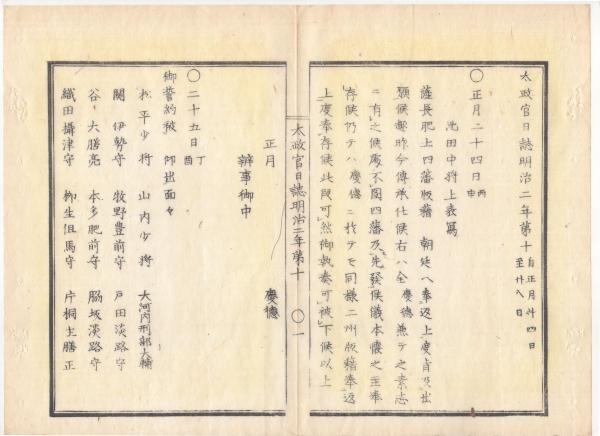 太政官日誌明治二年第十 自正月廿四日 至廿八日
○正月二十四日 丙申
池田中将上表写
薩長肥土四藩版籍 朝廷ヘ奉返上度旨及出
願候趣昨今傳承仕候右ハ全 慶德兼テノ素志
ニ有之候處不図四藩及先發候儀本懐之至奉
存候仍テハ 慶德ニ於テモ同様二州版籍奉返
上度奉存候此段可然御執奏可被下候以上
正月 慶德
辨事御中
太政官日誌明治二年第十 ○一
○二十五日 丁酉
御誓約被 仰出面々
松平少将 山内少将 大河内刑部大輔
関伊勢守 牧野豊前守 戸田淡路守
谷大膳亮 本多肥前守 脇坂淡路守
織田攝津守 柳生但馬守 片桐主膳正